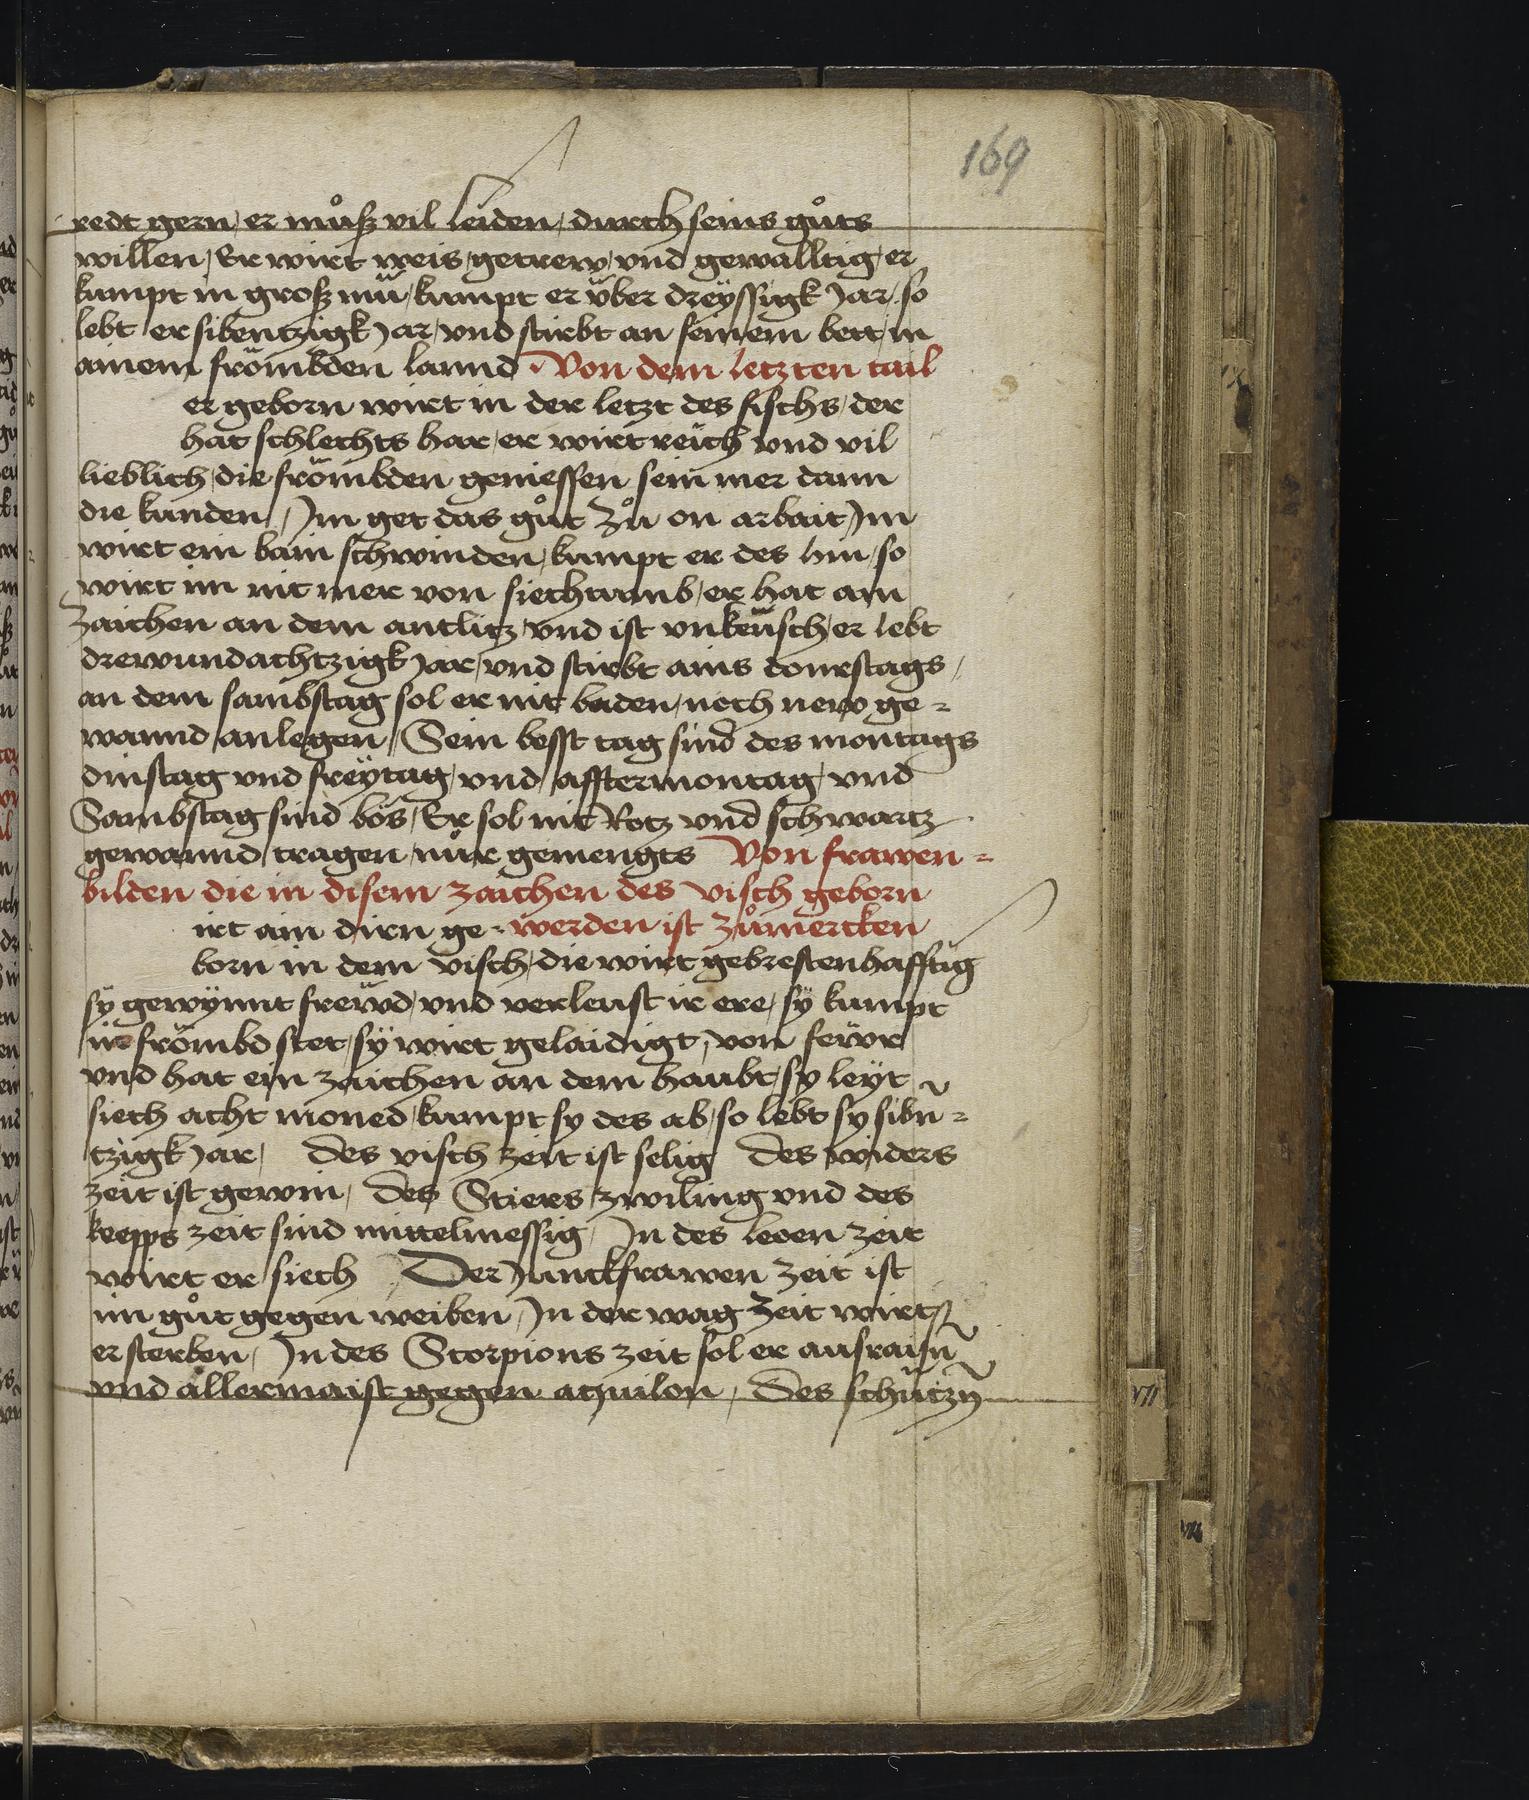 169
redt gern, er můsz vil leiden, durch seins gůts
willen, Er wirt weis, getrew, vnd gewalltig, er
kumpt in grosz mü, kumpt er über dreÿssigk Jar, so
lebt er sibentzigk Jar, vnd stirbt an seinem bett in
ainem frömbden lannd Von dem letzten tail
er geborn wirt in der letzt des fischs, der
hat schlechts har, er wirt reich vnd vil
lieblich, die frömbden geniessen sein mer dann
die kunden, Im get das gůt zů on arbait, Im
wirt ein bain schwinden, kumpt er des hin, so
wirt im nit mer von siechtumb, er hat ain
zaichen an dem antlitz vnd ist vnkeüsch, er lebt
drewundachtzigk Jar, vnd stirbt ains donrstags,
an dem sambstag sol er nit baden, noch new ge-
wannd anlegen, Sein besst tag sind des montags
dinstag vnd freÿtag, vnd afftermontag, vnd
Sambstag sind bös, Er sol nit Rotz vnd schwartz
gewannd tragen, nur gemengts Von frawen-
bilden die in disem zaichen des visch geborn
irt ain dirn ge- werden ist zůmercken
born in dem visch, die wirt gebrestenhafftig
sÿ gewÿnnt frewd, vnd verleust ir ere, sÿ kumpt
in frömbd stet, sÿ wirt gelaidigt, von fewr
vnd hat ein zaichen an dem haubt, sy leÿt
siech acht moned, kumpt sy des ab, so lebt sy sibn-
tzigk Jar, des visch zeit ist selig des widers
zeit ist gewin, des Stiers zwiling vnd des
krepps zeit sind mittelmessig, In des leoen zeit
wirt er siech Der Junckfrawen zeit ist
im gůt gegen weiben, In der wag zeit wirt
er sterben, In des Scorpions zeit sol er ausraisn
vnd allermaist gegen aquilon, des schützn
VII